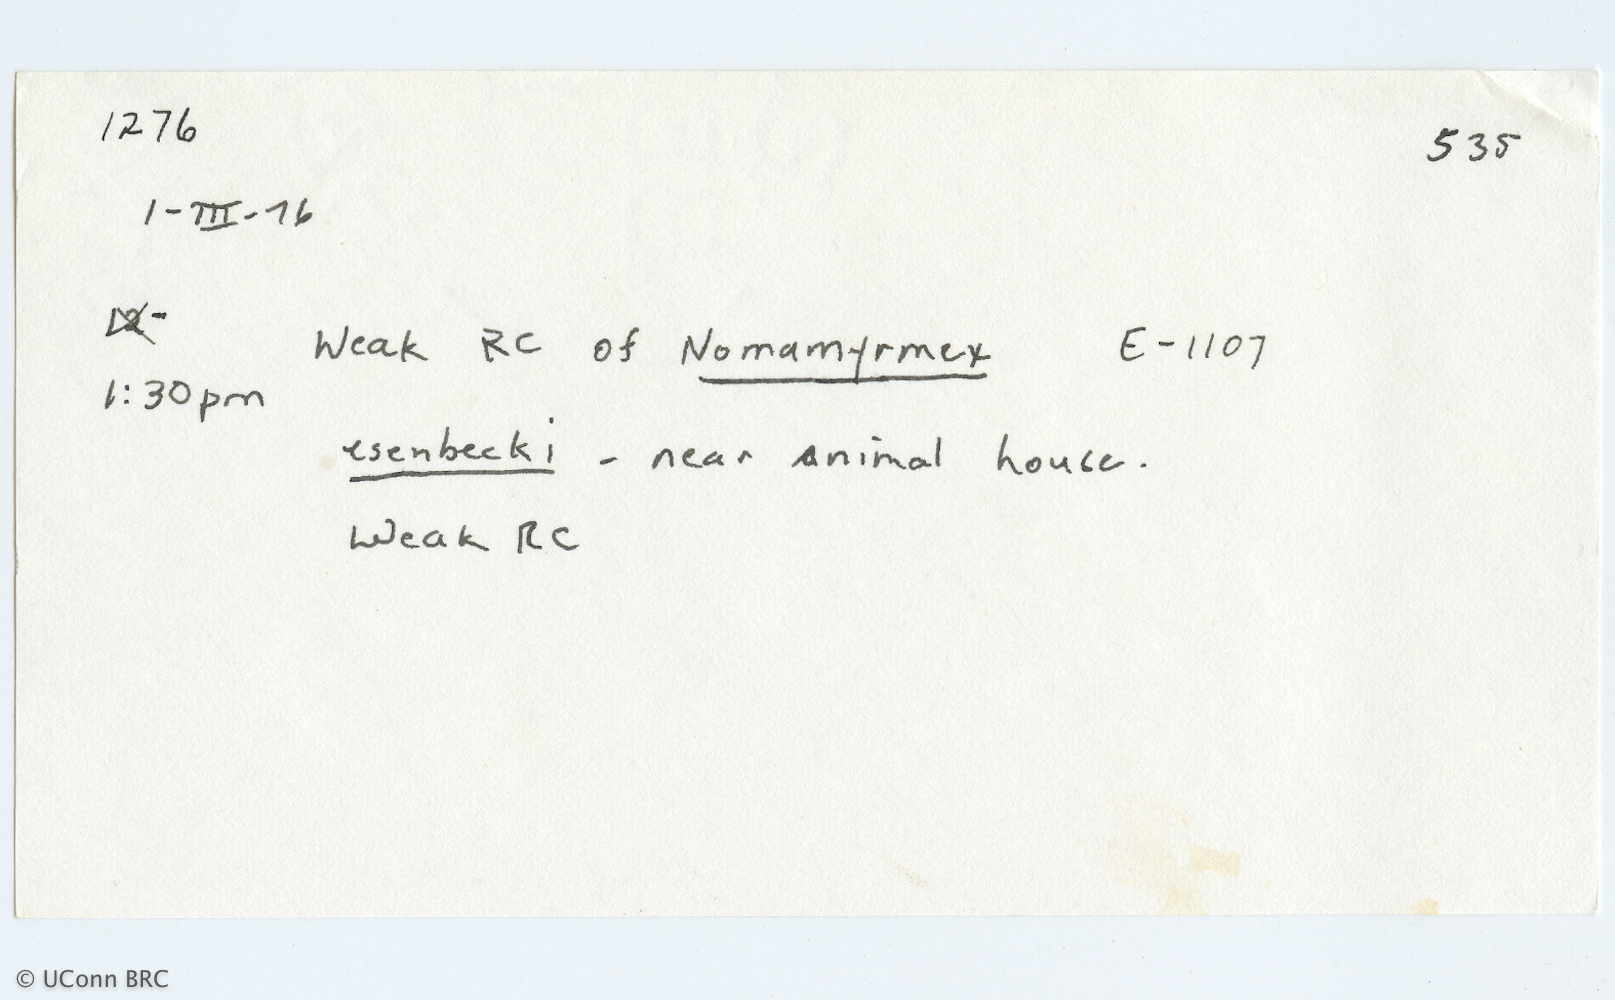 1276
535
1-III-76
1:30pm
Weak RC of Nomamyrmex E-1107
esenbecki - near animal house.
Weak RC
© UConn BRC